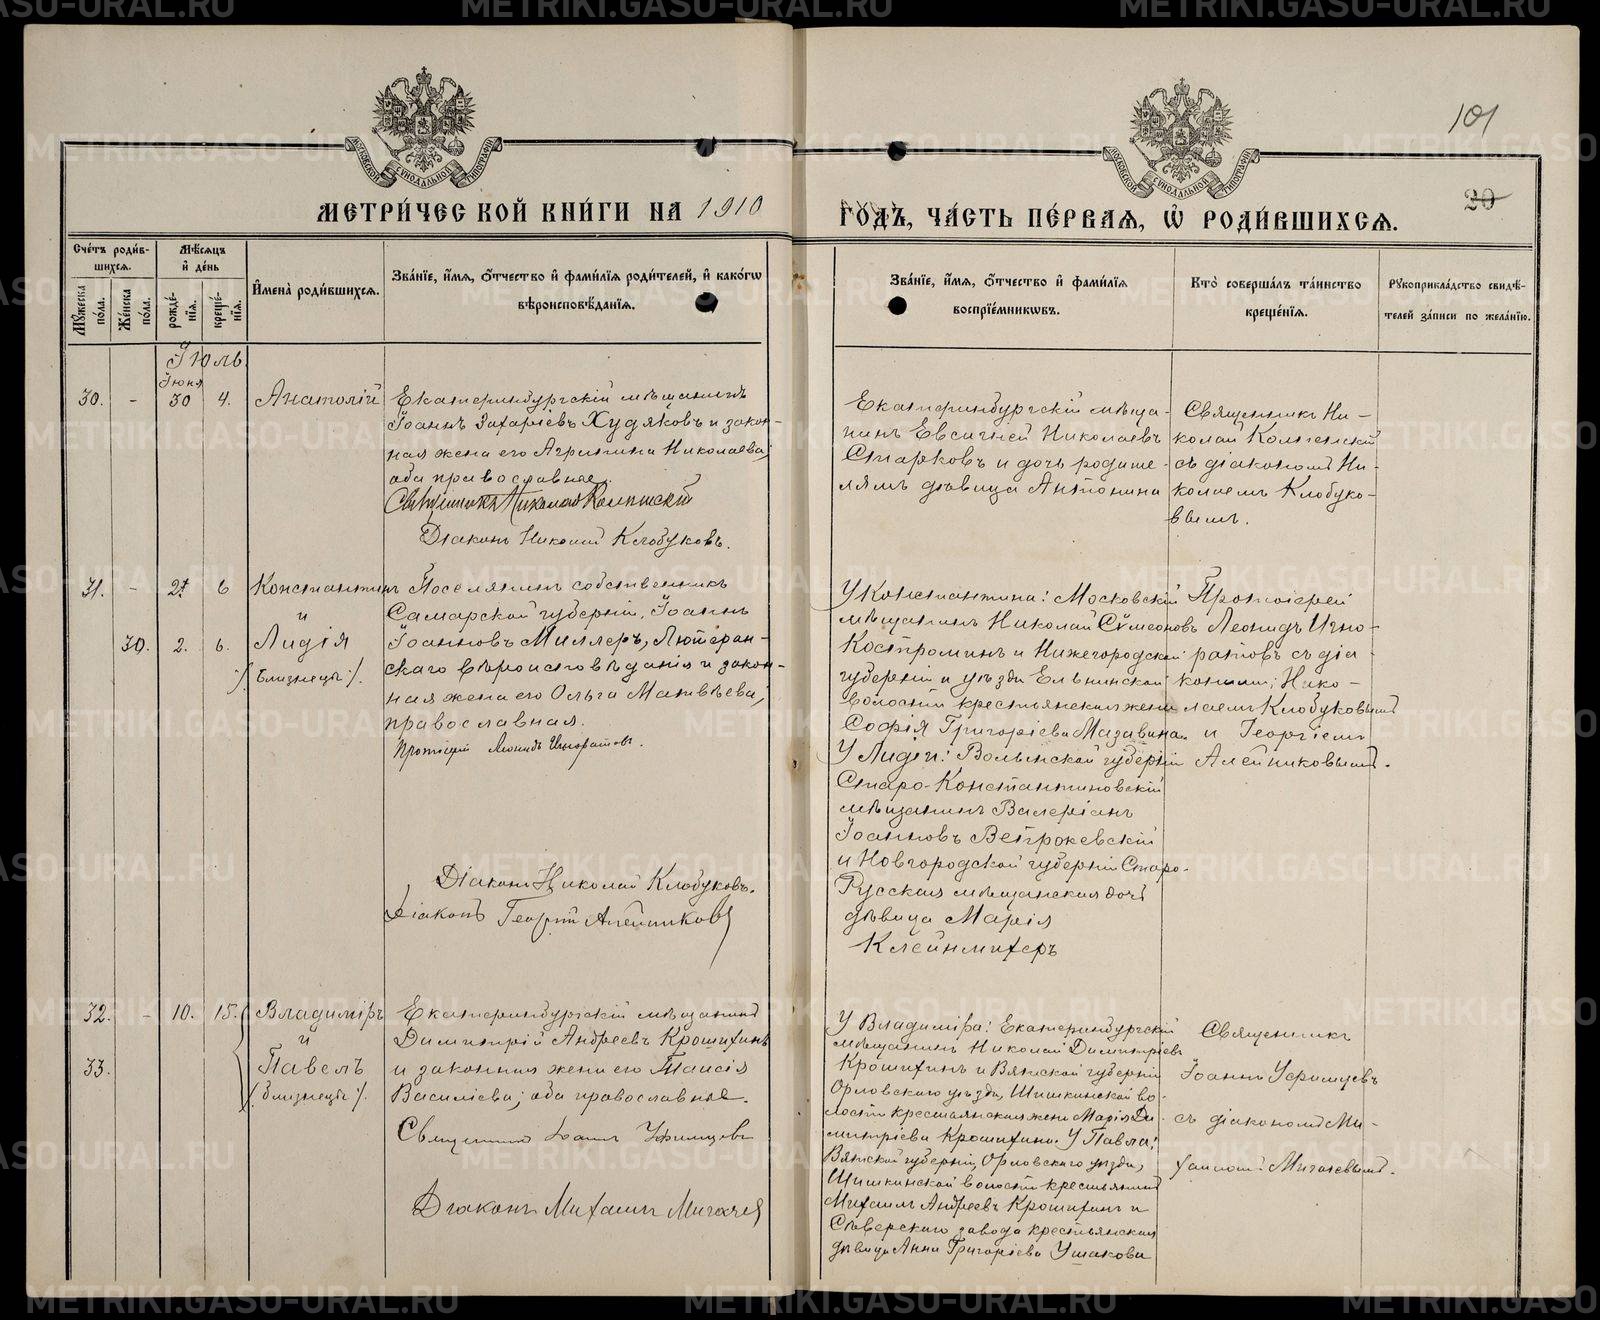 101
20
МЕТРИ́ЧЕСКОЙ КНИ́ГИ НА 1910
ГОДЪ, ЧА́СТЬ ПЕ́РВАѦ, Ѡ҆ РОДИ́ВШИХСѦ.
Сче́тъ роди́в-
шихсѧ.
Мѣ́сѧцъ
и҆ де́нь
Мꙋ́жеска по́ла.
Же́нска по́ла.
рожде́-нїѧ.
креще́-нїѧ.
И҆мена̀ роди́вшихсѧ.
Зва́нїе, и҆́мѧ, ѻ҆́тчество и҆ фами́лїѧ роди́телей, и҆ како́гѡ
вѣроисповѣ́данїѧ.
Зва́нїе, и҆́мѧ, ѻ҆́тчество и҆ фами́лїѧ
воспрїе́мникѡвъ.
Кто̀ соверша́лъ та́инство
креще́нїѧ.
Рꙋкоприкла́дство свидѣ́-
телей за́писи по жела́нїю.
Іюль.
Іюня
30. - 30 4. Анатолій
Екатеринбургскій мѣщанинъ
Іоаннъ Захаріевъ Худяковъ и закон-
ная жена его Агрипина Николаева;
оба православные.
Священникъ Николай
Діаконъ Николай Клобуковъ.
Екатеринбургскій мѣща-
нинъ Евсигней Николаевъ
Старковъ и дочь родите-
лямъ дѣвица Антонина
Священникъ Ни-
колай
съ діакономъ Ни-
колаемъ Клобуко-
вымъ.
31. - 2. 6 Константинъ
и
30. 2. 6. Лидія
/. близнецы ./.
Поселянинъ собственникъ
Самарской губерніи, Іоаннъ
Іоанновъ Миллеръ, Лютеран-
скаго вѣроисповѣданія и закон-
ная жена его Ольга Матвѣева;
православная.
Протоіерей Леонидъ Игноратовъ.
Діаконъ Николай Клобуковъ.
Діаконъ Георгій Алейниковъ
У Константина: Московскій
мѣщанинъ Николай Сѵмеоновъ
Костроминъ и Нижегородской
губерніи и уѣзда Ельнинской
волости крестьянская жена
Софія Григоріева Мазавина.
У Лидіи: Волынской губерніи
Старо-Константиновскій
мѣщанинъ Валеріанъ
Іоанновъ
и Новгородской губерніи Старо-
Русская мѣщанская дочь
дѣвица Марія
Клейнмихеръ
Протоіерей
Леонидъ Игно-
ратовъ съ діа-
кономъ: Нико-
лаемъ Клобуковымъ
и Георгіемъ
Алейниковымъ.
32. - 10. 15. Владиміръ
и
33. Павелъ
/. близнецы ./.
Екатеринбургскій мѣщанинъ
Димитрій Андреевъ Крошихинъ
и законная жена его Таисія
Василіева; оба православные.
Священникъ Іоаннъ Уфимцевъ
Діаконъ Михаилъ Мигачев
У Владиміра: Екатеринбургскій
мѣщанинъ Николай Димитріевъ
Крошихинъ и Вятской губерніи
Орловскаго уѣзда, Шишкинской во-
лости крестьянская жена Марія Ди-
митріева Крошихина. У Павла:
Вятской губерніи, Орловскаго уѣзда,
Шишкинской волости крестьянинъ
Михаилъ Андреевъ Крошихинъ и
Сѣверскаго завода крестьянская
дѣвица Анна Григоріева Ушакова
Священникъ
Іоаннъ Уфимцевъ
съ діакономъ Ми-
хаиломъ Мигачевымъ.